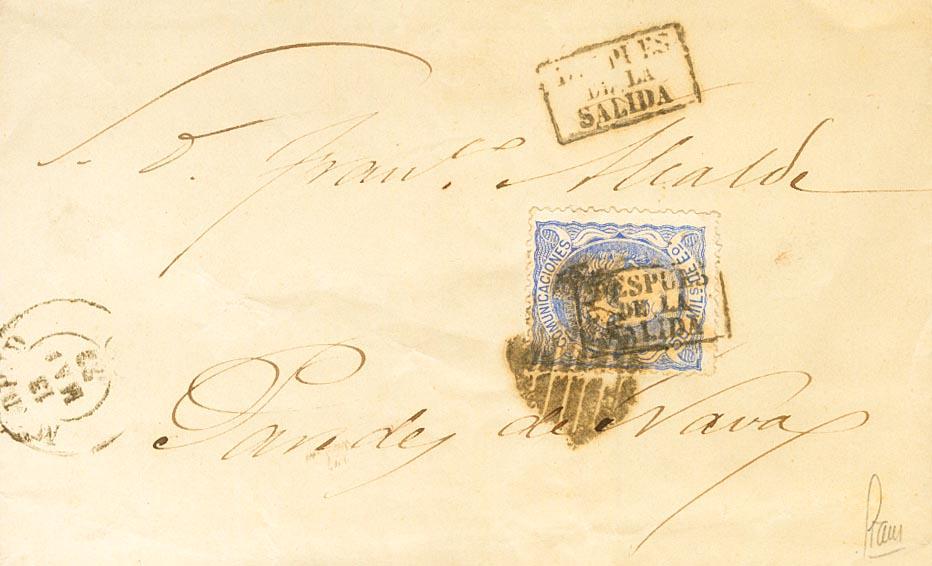 DESPUES
DE LA
SALIDA
S. D. Franco. Alcalde
COMUNICACIONES
MILS. DE Eo
DESPUES
DE LA
SALIDA
Paredes de Nava